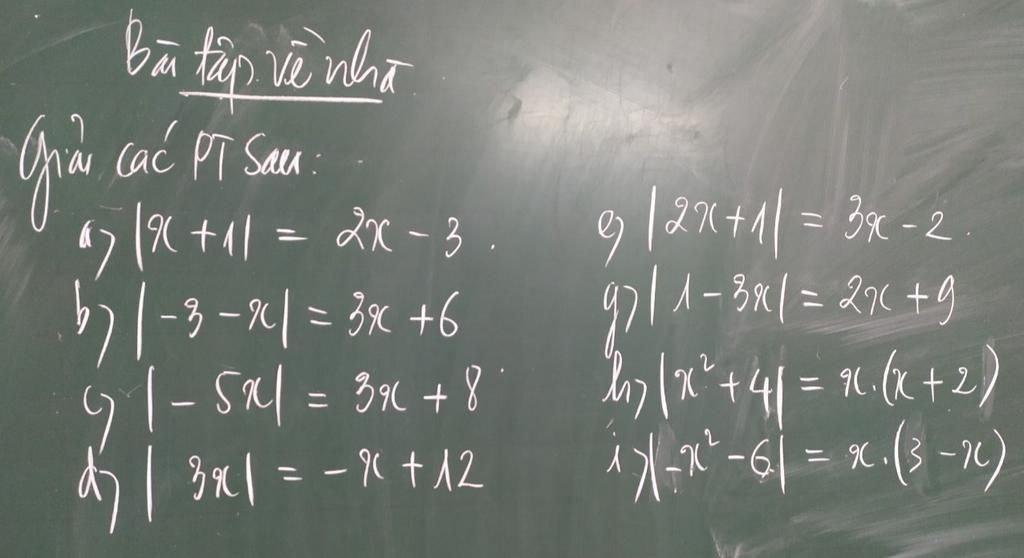 Bài tập về nhà
Giải các PT sau:
a) |x + 1| = 2x - 3.
b) |-3 - x| = 3x + 6
c) |- 5x| = 3x + 8
d) | 3x| = - x + 12
e) |2x + 1| = 3x - 2.
g) | 1 - 3x| = 2x + 9
h) |x² + 4| = x.(x + 2)
i) |-x² - 6| = x.(3 - x)